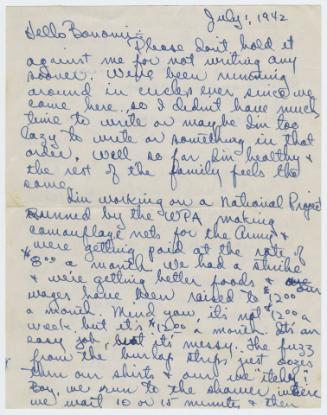 July 1, 1942
Hello Bonomi:-
Please don't hold it
against me for not writing any
sooner. We've been running
around in circles ever since we
came here, so I didn't have much
time to write or maybe I'm too
lazy to write or something in that
order. Well so far I'm healthy &
the rest of the family feels the
same.
I'm working on a National Project
runned by the WPA making
camouflage nets for the Army &
were getting paid at the rate of
$8.00 a month. We had a strike
& we're getting better foods & our
wages have been raised to $12.00
a month. Mind you, it's not $12.00 a
week, but it's $12.00 a month. It's an
easy job, but it's messy. The fuzz
from the burlap strips just oozes
thru our shirts & are we "itchy."
Boy, we run to the shower where
we wait 10 or 15 minutes & then